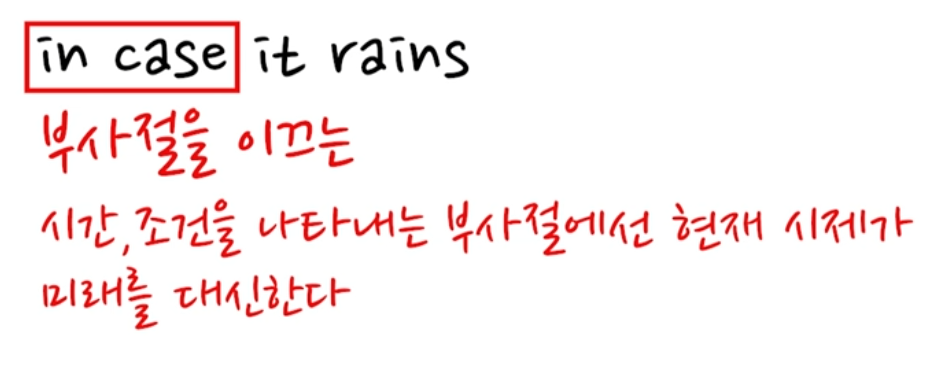 in case it rains
부사절을 이끄는
시간, 조건을 나타내는 부사절에선 현재 시제가
미래를 대신한다